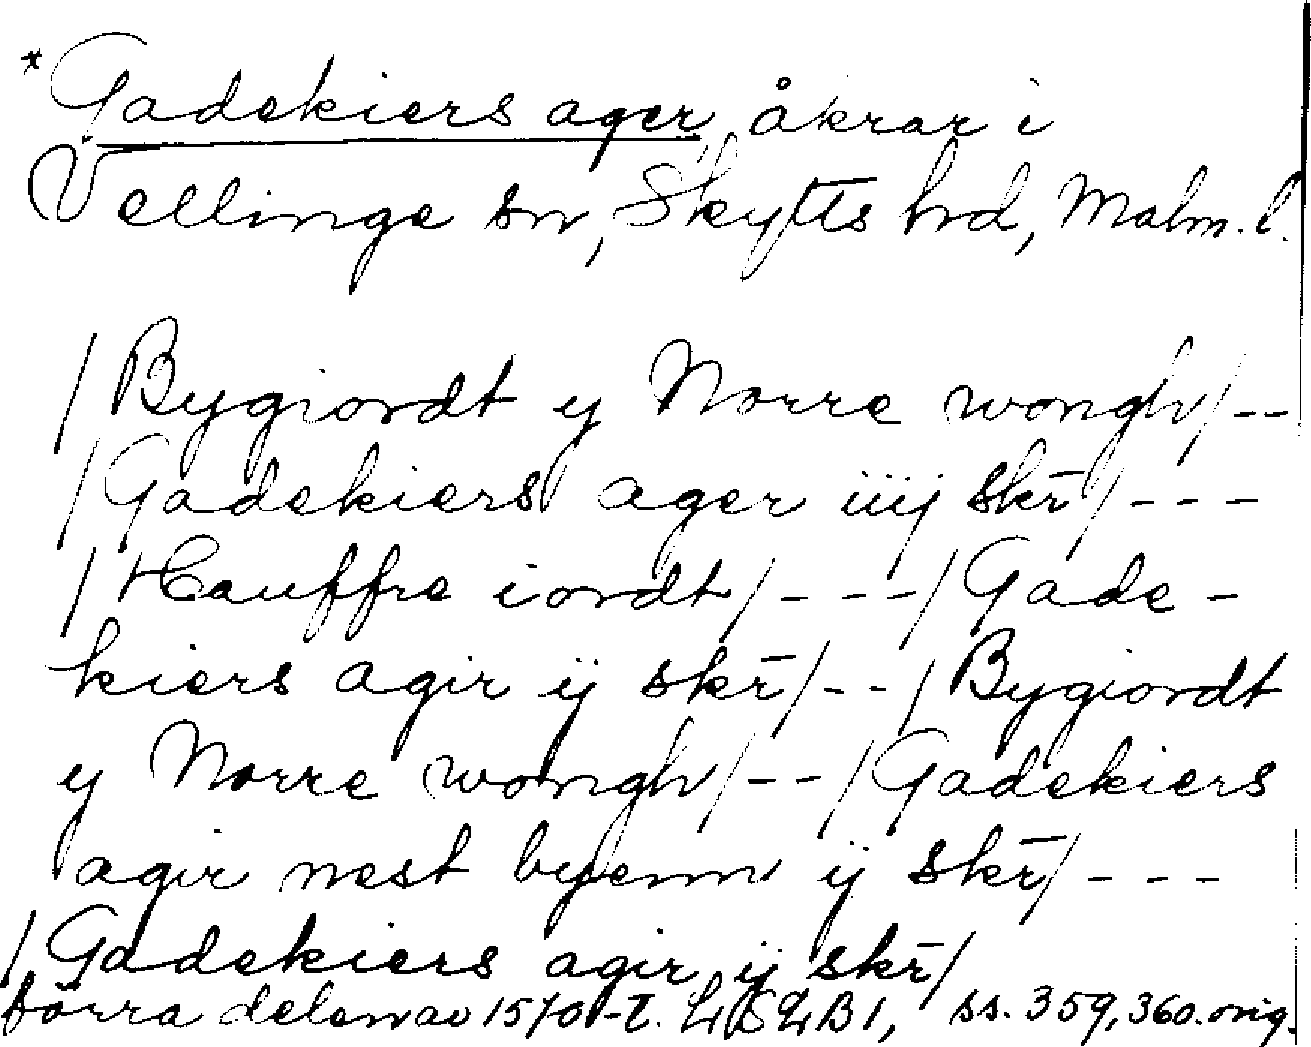 *Gadekiers ager, åkrar i
Vellinge sn, Skytts hd, Malm. l.
/Bygiordt y Norre wongh/--
/Gadekiers ager iiij skr̄/---
/Hauffre iordt/---/Gade-
kiers agir ij skr̄/--/Bygiordt
y Norre wongh/--/Gadekiers
agir nest byenn ij skr̄/---
/Gadekiers agir ij skr̄/
förra delen av 1570-t. LSLB1, ss. 359, 360. orig.